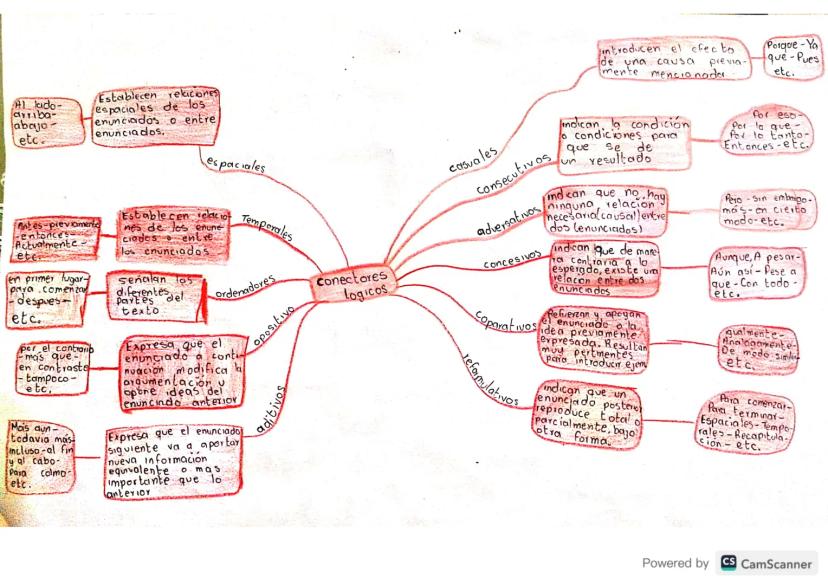 conectores
logicos
espaciales
Establecen relaciones
espaciales de los
enunciados o entre
enunciados.
Al lado-
arriba-
abajo-
etc.
Temporales
Establecen relacio-
nes de los enun-
ciados o entre
los enunciados
Antes-previamente
-entonces-
Actualmente-
etc.
ordenadores
señalan los
diferentes
partes del
texto
en primer lugar-
para comenzar
-despues-
etc.
opositivo
Expresa que el
enunciado a conti-
nuación modifica la
argumentación u
opone ideas del
enunciado anterior
por el contrario
-más que-
en contraste
-tampoco-
etc.
aditivos
Expresa que el enunciado
siguiente va a aportar
nueva información
equivalente o mas
importante que lo
anterior
Mais aun-
todavia más-
incluso-al fin
y al cabo-
para colmo-
etc.
casuales
introducen el efecto
de una causa previa-
mente mencionada
Porque-Ya
que-Pues
etc.
consecutivos
indican la condición
o condiciones para
que se de
un resultado
Por eso-
Por lo que-
Por lo tanto-
Entonces-etc.
adversativos
indican que no hay
ninguna relación
necesaria(causal)entre
dos (enunciados)
Pero-sin embargo-
más-en cierto
modo-etc.
concesivos
indican que de mane-
ra contraria a lo
esperado, existe una
relacion entre dos
enunciados
Aunque, A pesar-
Aún así-Pese a
que-Con todo-
etc.
coparativos
Refuerzan y apoyan
el enunciado o la
idea previamente
expresada. Resultan
muy pertinentes
para introducir ejem
igualmente-
Analogamente-
De modo similar
etc.
reformulativos
indican que un
enunciado posterior
reproduce total o
parcialmente, bajo
otra forma.
Para comenzar-
Para terminar-
Espaciales-Tempo-
rales-Recapitula-
cion-etc.
Powered by CS CamScanner